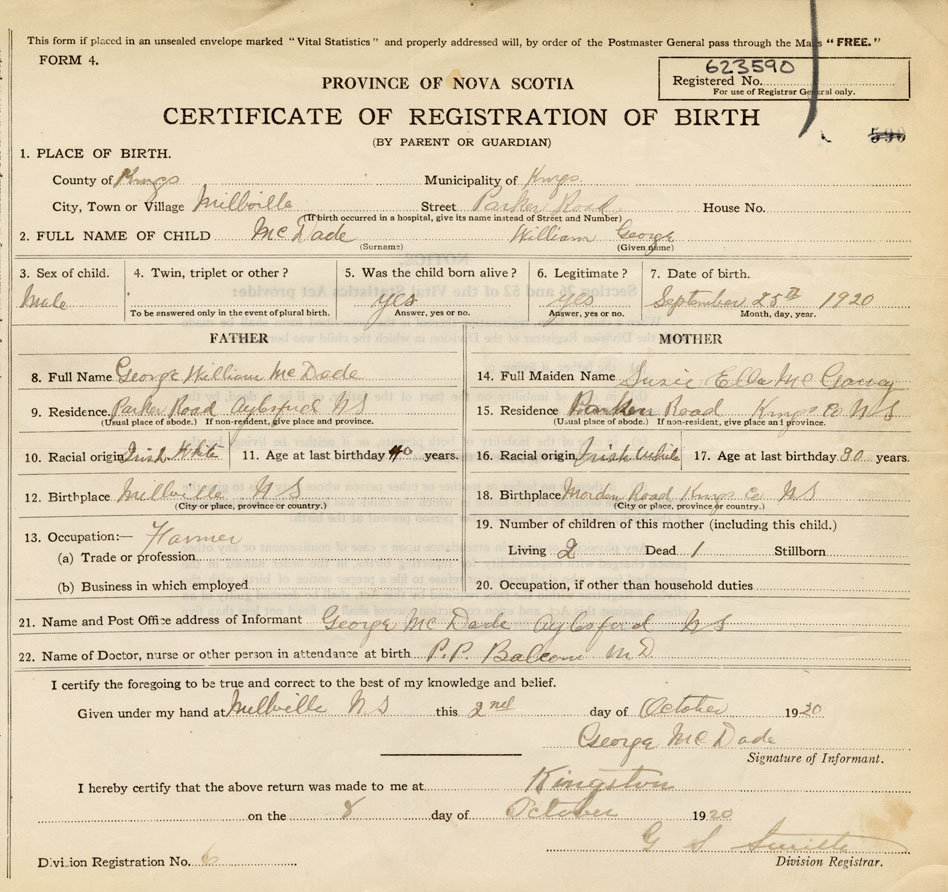 This form if placed in an unsealed envelope marked "Vital Statistics" and properly addressed will, by order of the Postmaster General pass through the Mails "FREE."
FORM 4.
623590
Registered No.
For use of Registrar General only.
PROVINCE OF NOVA SCOTIA
CERTIFICATE OF REGISTRATION OF BIRTH
(BY PARENT OR GUARDIAN)
590
1. PLACE OF BIRTH.
County of Kings Municipality of Kings
City, Town or Village Millville Street Parker Road House No.
(If birth occurred in a hospital, give its name instead of Street and Number)
2. FULL NAME OF CHILD Mc Dade William George
(Surname) (Given name)
3. Sex of child. 4. Twin, triplet or other? 5. Was the child born alive? 6. Legitimate? 7. Date of birth.
Male yes yes September 25th 1920
To be answered only in the event of plural birth. Answer, yes or no. Answer, yes or no. Month, day, year.
FATHER MOTHER
8. Full Name George William Mc Dade
14. Full Maiden Name Susie Ella Mc
9. Residence. Parker Road Aylesford N S
(Usual place of abode.) If non-resident, give place and province.
15. Residence Parker Road Kings Co N S
(Usual place of abode.) If non-resident, give place and province.
10. Racial origin Irish White 11. Age at last birthday 40 years.
16. Racial origin Irish White 17. Age at last birthday 30 years.
12. Birthplace Millville N S
(City or place, province or country.)
18. Birthplace Morden Road Kings Co N S
(City or place, province or country.)
13. Occupation:— Farmer
(a) Trade or profession
(b) Business in which employed
19. Number of children of this mother (including this child.)
Living 2 Dead 1 Stillborn
20. Occupation, if other than household duties
21. Name and Post Office address of Informant George Mc Dade Aylesford N S
22. Name of Doctor, nurse or other person in attendance at birth P.P. Balcom M D
I certify the foregoing to be true and correct to the best of my knowledge and belief.
Given under my hand at Millville N S this 2nd day of October 1920
George Mc Dade
Signature of Informant.
I hereby certify that the above return was made to me at Kingston
on the 8 day of October 1920
G S Smith
Division Registration No. 6 Division Registrar.